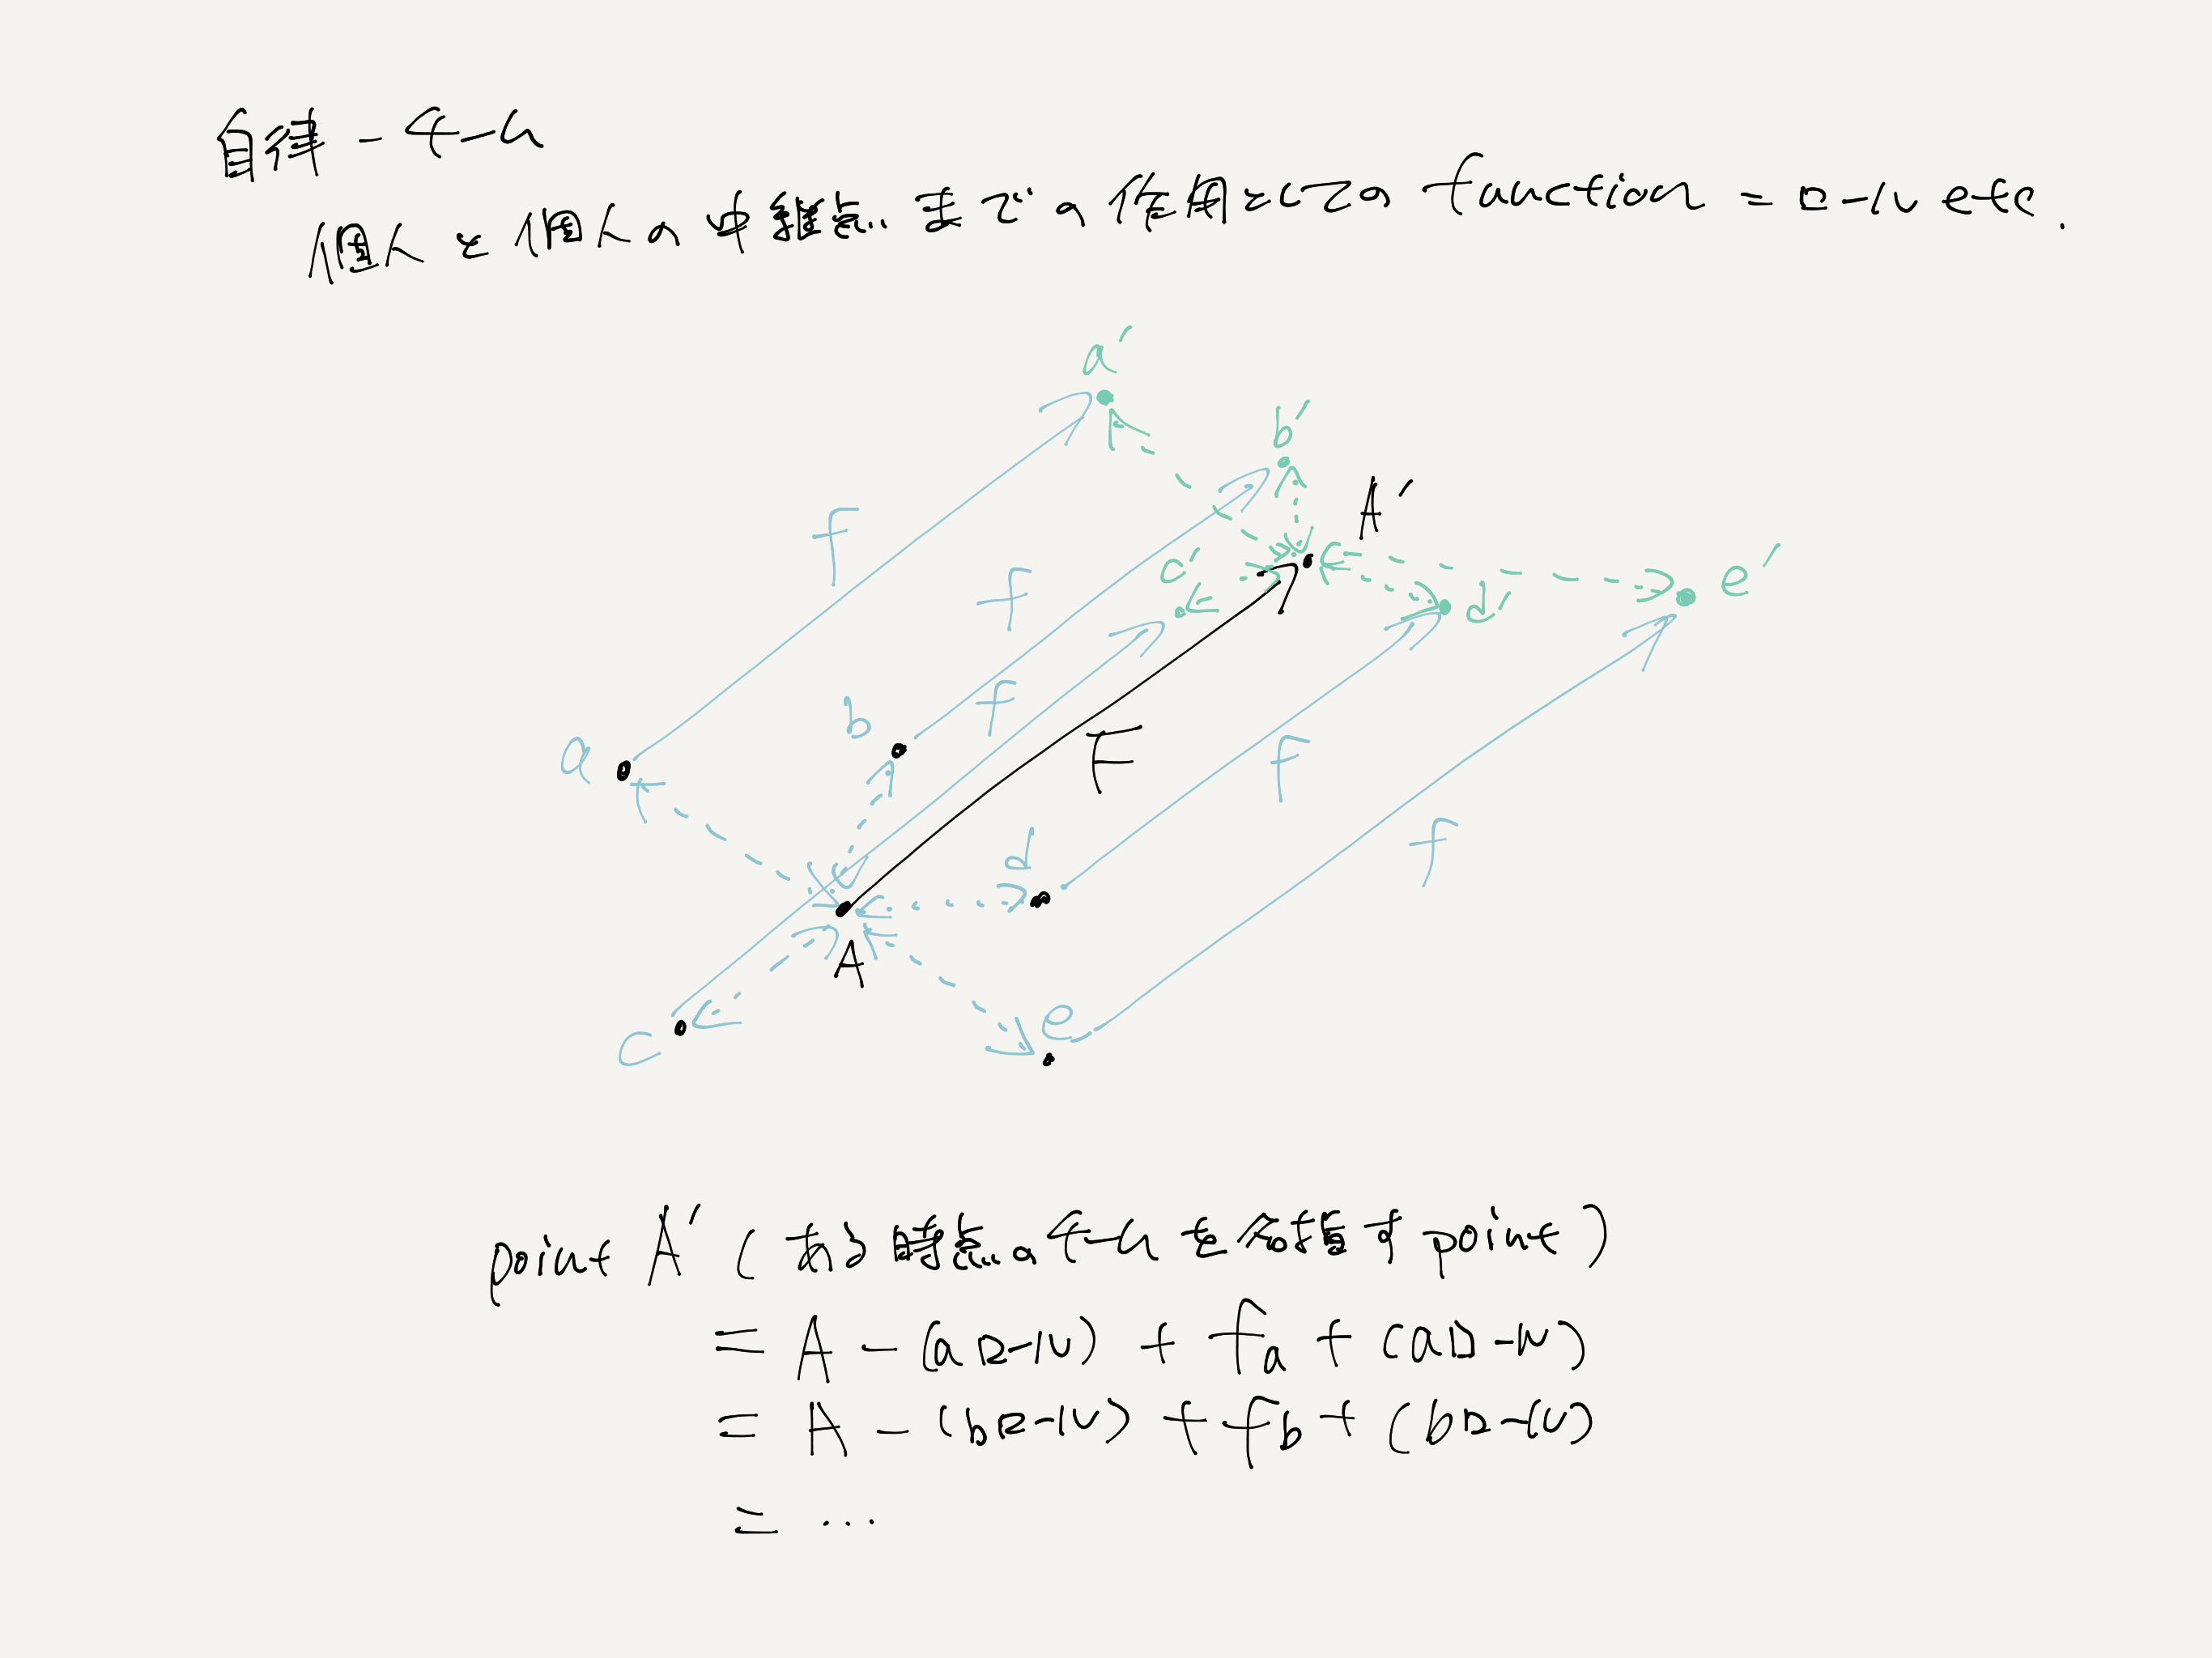 自律-チーム
個人と個人の中継点までの作用としての function = ロール etc.
a'
b'
A'
c'
d'
e'
f
f
f
F
f
f
a
b
d
A
c
e
point A' (ある時点のチームを名指す point)
= A - (aロール) + fa + (aロール)
= A - (bロール) + fb + (bロール)
= ...